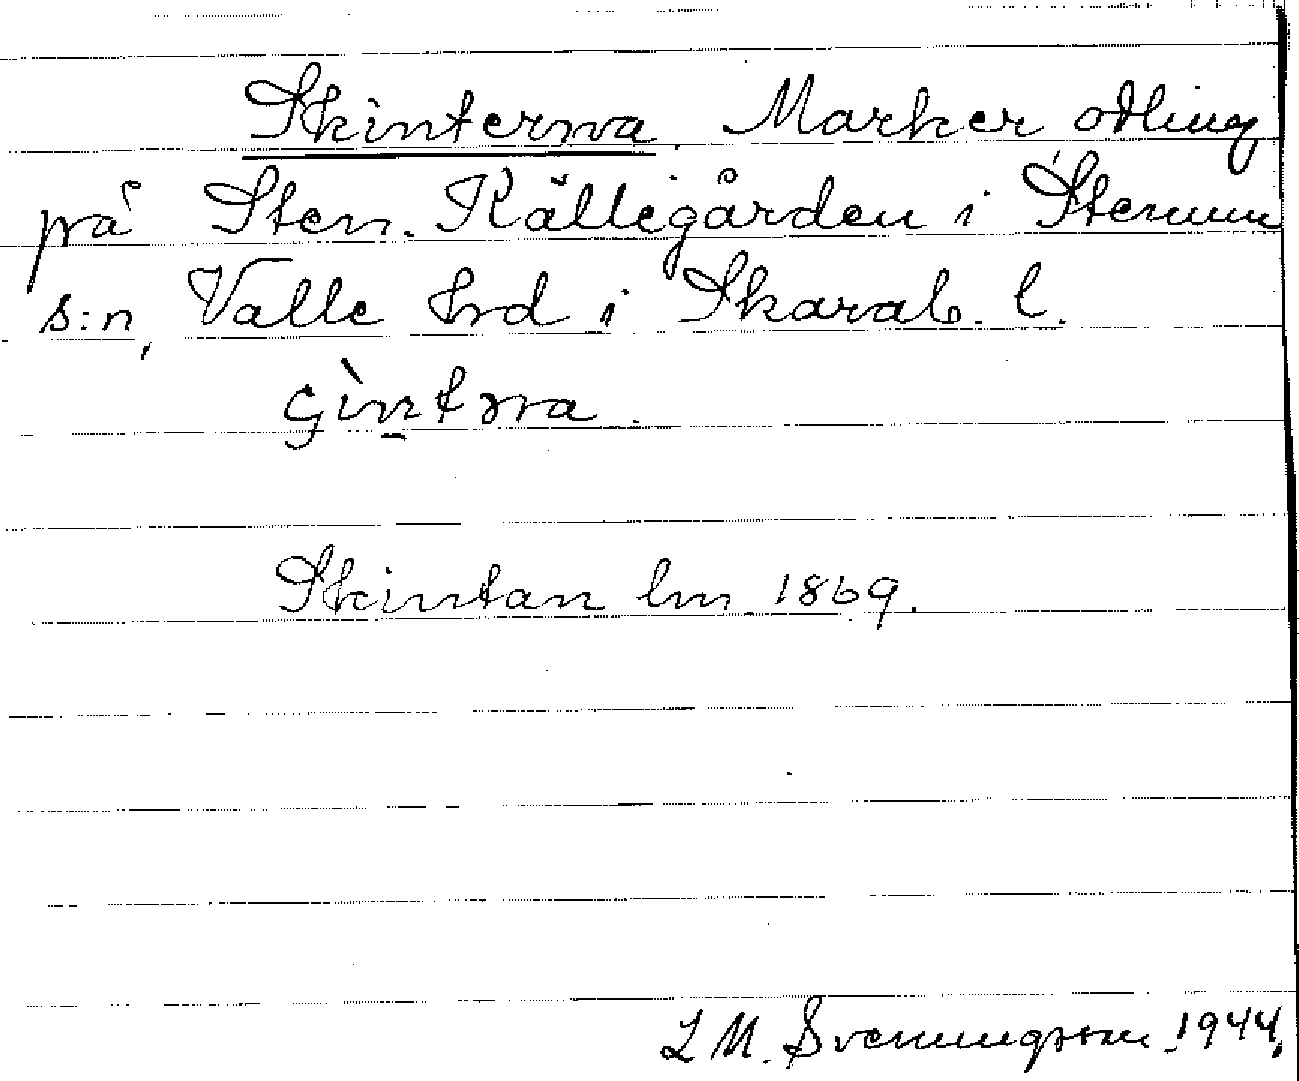 Skinterna. Marker odling
på Sten. Källegården i Stenum
s:n, Valle hrd i Skarab. l.
çìntɘrna.
Skintan lm 1869.
L M. Svenungsson 1944.